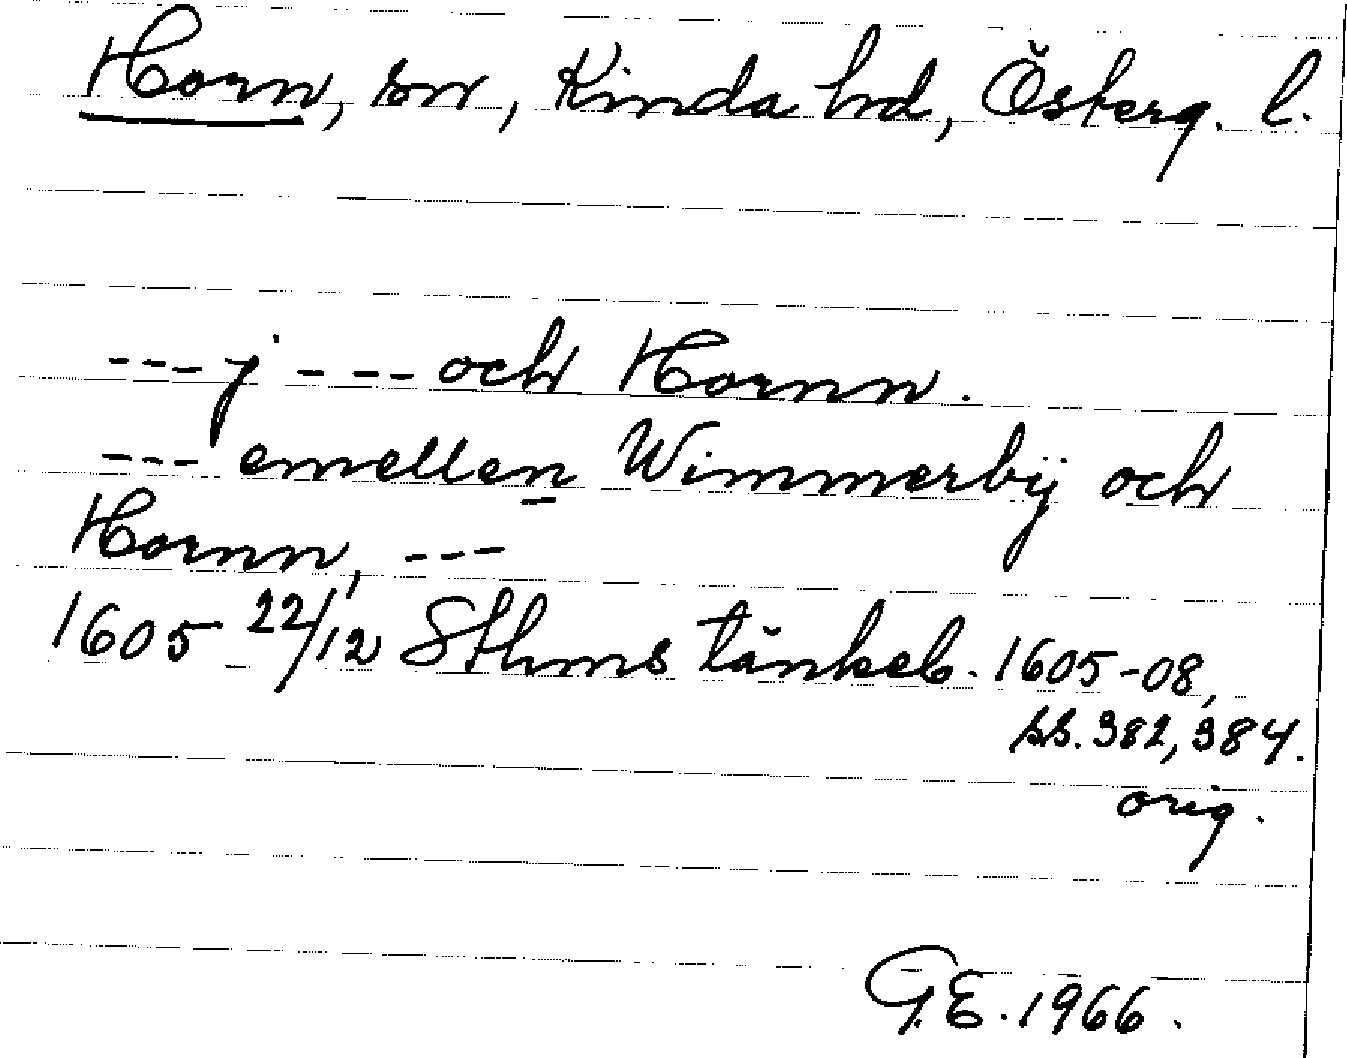 Horn, sn, Kinda hd, Österg. l.
--- j --- och Hornn.
--- emellen Wimmerbÿ och
Hornn, ---
1605 22/12 Sthms tänkeb. 1605-08,
ss. 382, 384.
orig.
G.E. 1966.